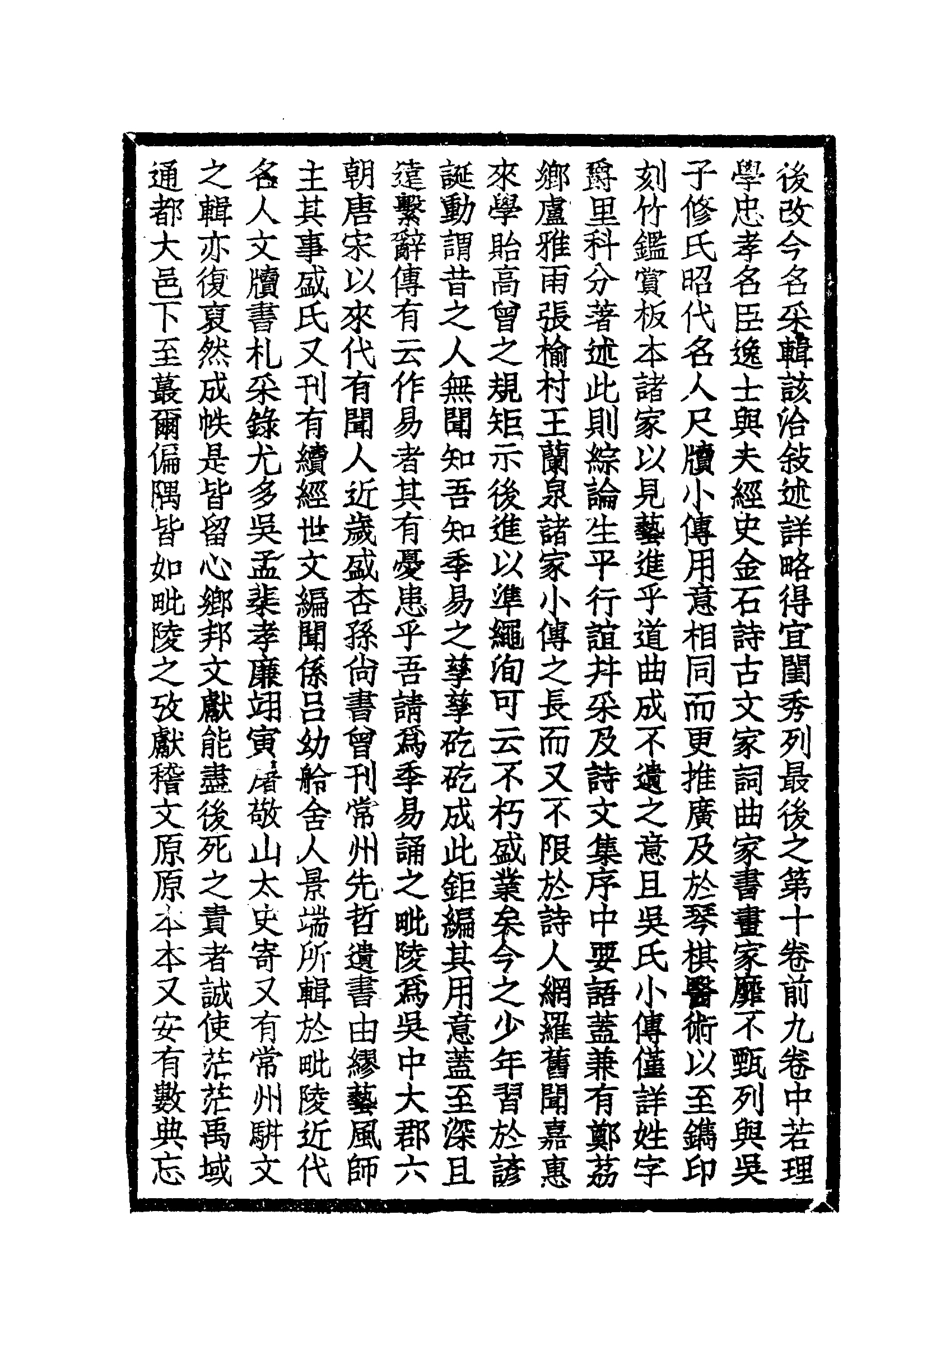 後改今名采輯該洽敍述詳略得宜閨秀列最後之第十卷前九卷中若理
學忠孝名臣逸士與夫經史金石詩古文家詞曲家書畫家靡不甄列與吳
子修氏昭代名人尺牘小傳用意相同而更推廣及於琴棋醫術以至鐫印
刻竹鑑賞板本諸家以見藝進乎道曲成不遺之意且吳氏小傳僅詳姓字
爵里科分著述此則綜論生平行誼幷采及詩文集序中要語蓋兼有鄭荔
鄉盧雅雨張榆村王蘭泉諸家小傳之長而又不限於詩人網羅舊聞嘉惠
來學貽高曾之規矩示後進以準繩洵可云不朽盛業矣今之少年習於諺
誕動謂昔之人無聞知吾知季易之孳孳矻矻成此鉅編其用意蓋至深且
遠繫辭傳有云作易者其有憂患乎吾請爲季易誦之毗陵爲吳中大郡六
朝唐宋以來代有聞人近歲盛杏孫尙書曾刊常州先哲遺書由繆藝風師
主其事盛氏又刊有續經世文編聞係呂幼舲舍人景端所輯於毗陵近代
名人文牘書札采錄尤多吳孟棐孝廉翊寅屠敬山太史寄又有常州駢文
之輯亦復裒然成帙是皆留心鄉邦文獻能盡後死之責者誠使茫茫禹域
通都大邑下至蕞爾偏隅皆如毗陵之攷獻稽文原原本本又安有數典忘